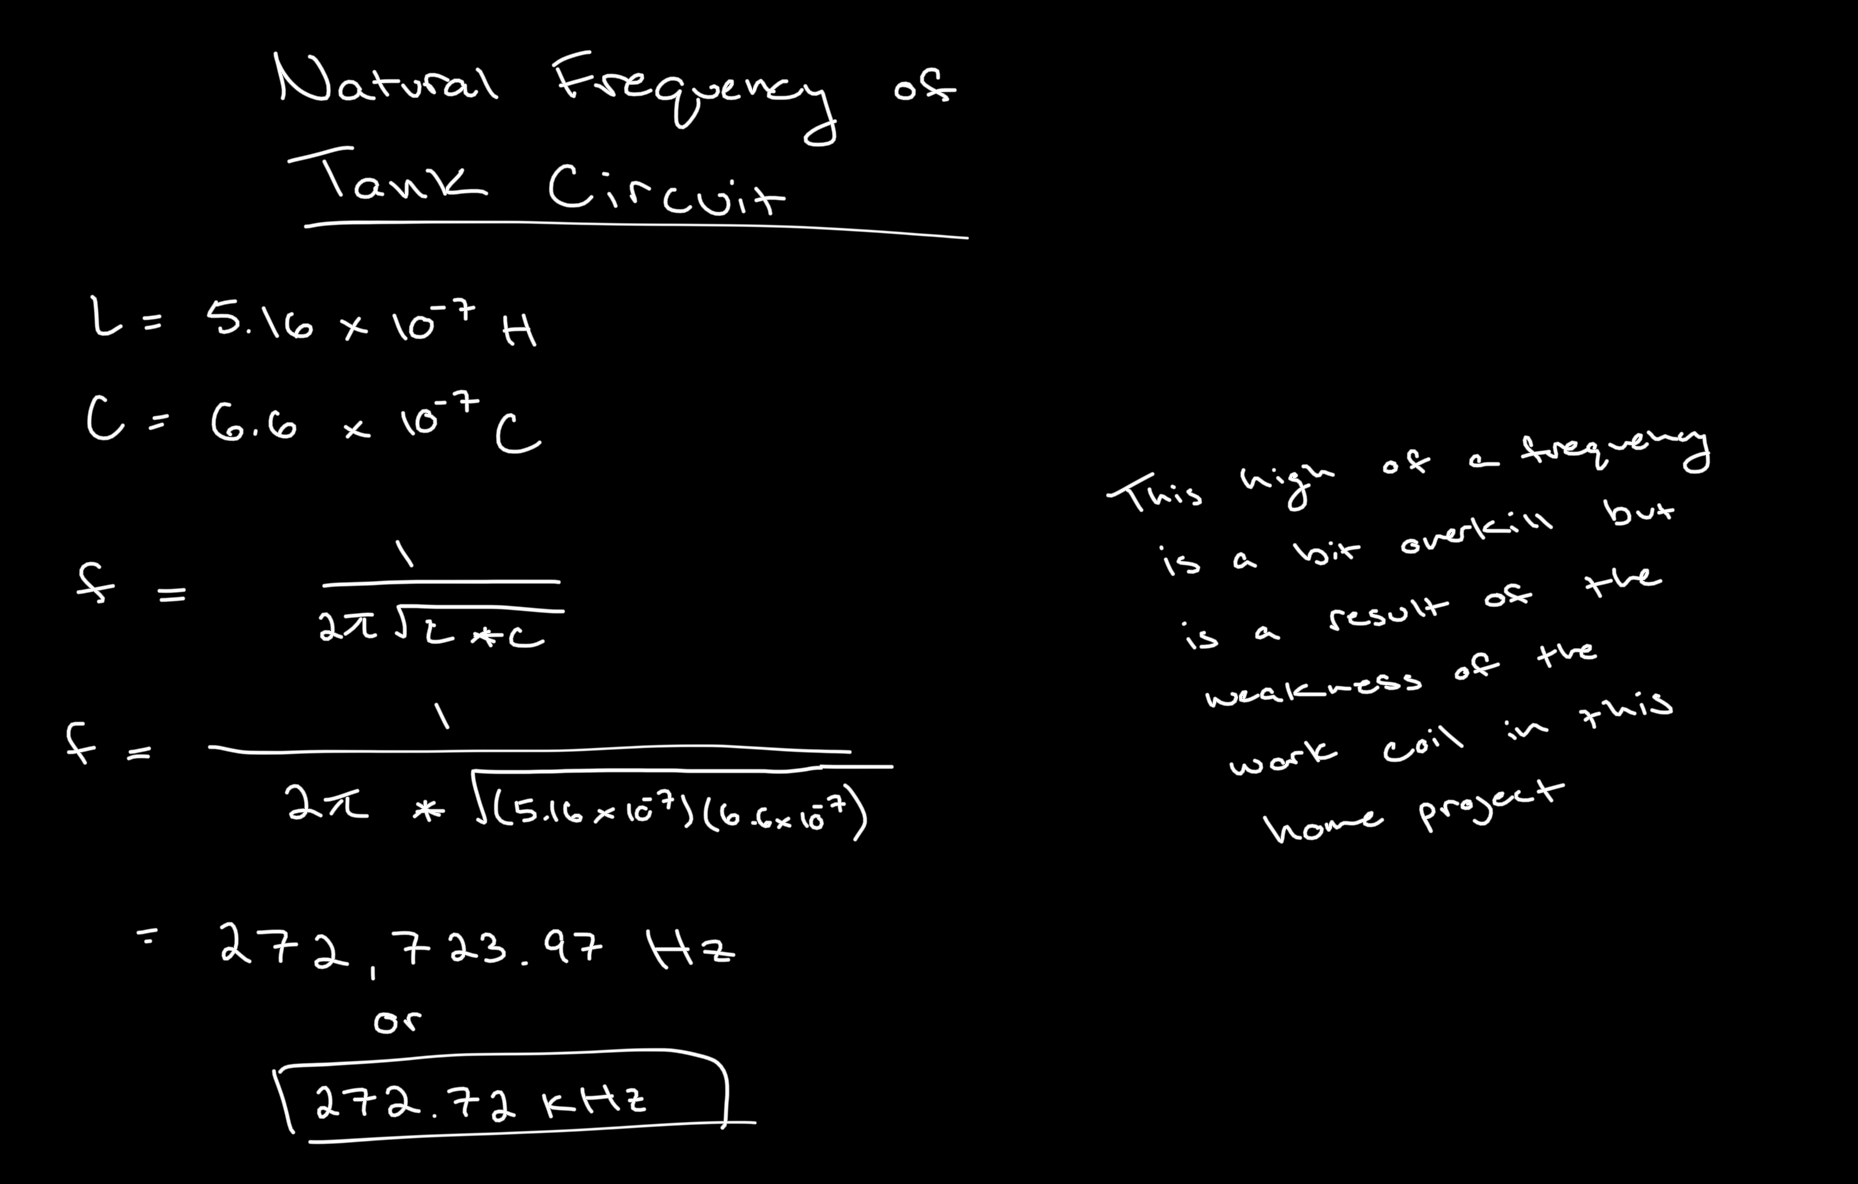 Natural Frequency of
Tank Circuit
L = 5.16 × 10⁻⁷ H
C = 6.6 × 10⁻⁷ C
f = 1
2π √L * C
f = 1
2π * √(5.16 × 10⁻⁷)(6.6 × 10⁻⁷)
= 272,723.97 Hz
or
272.72 kHz
This high of a frequency
is a bit overkill but
is a result of the
weakness of the
work coil in this
home project